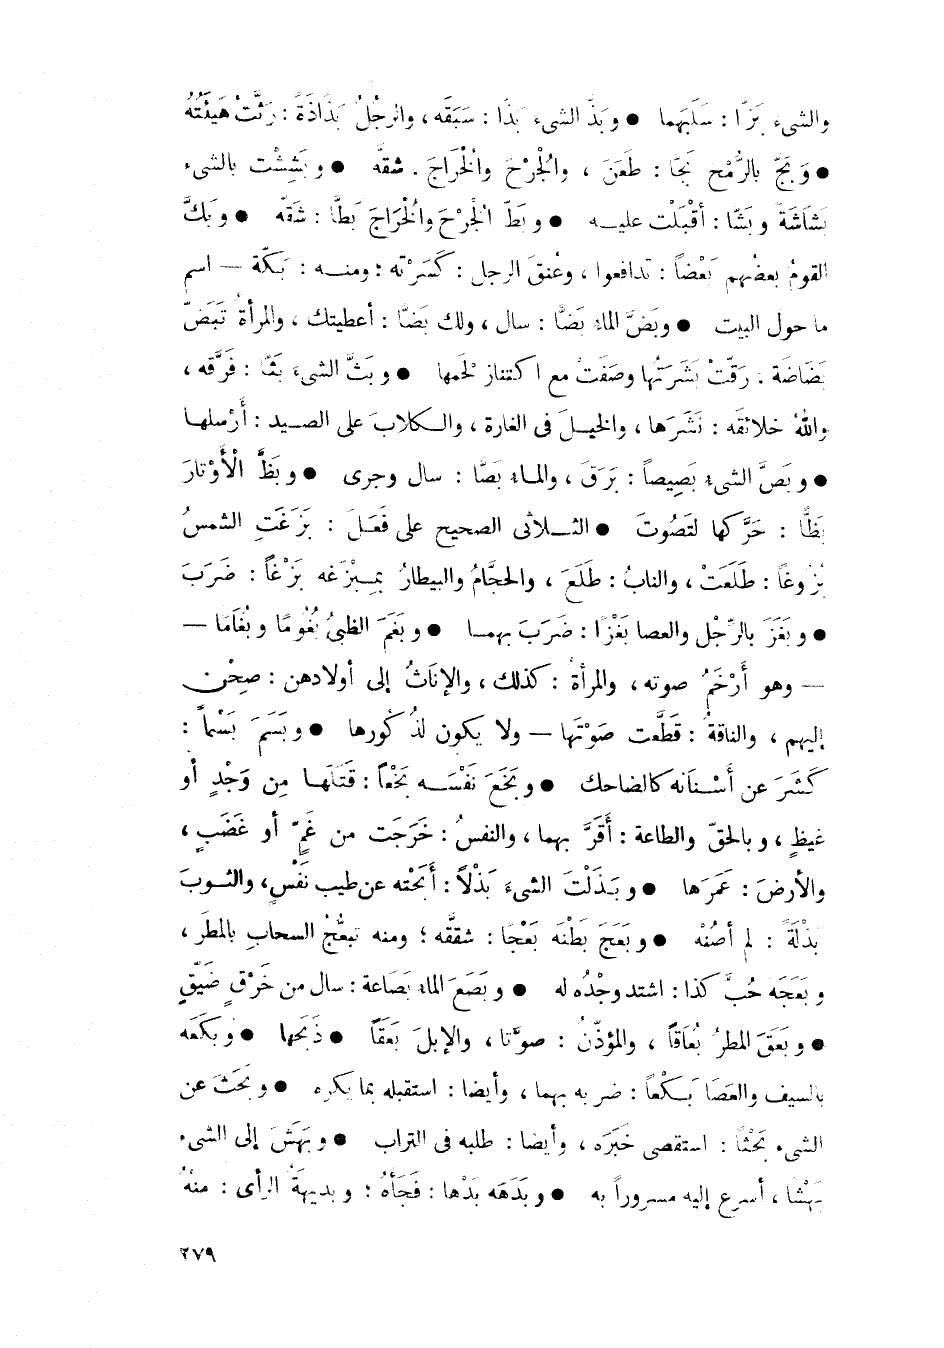 والشىء بَزًّا : سَلَبَهما ● وبَذَّ الشىء بَذًّا : سَبَقَه ، والرجُلُ بَذَاذَةً : رَثَّتْ هَيْئَتُهُ
● وَبَجَّ بالرُّمْحِ بَجًّا : طَعَنَ ، والْجُرْحَ والْخُرَاجَ . شقَّه ● وبَشِشْت بالشىء
بَشَاشَةً وبَشًّا : أقْبَلْت عليـه ● وبَطَّ الْجُرْحَ والْخُرَاجَ بَطًّا : شَقَّه ● وبَكَّ
القومُ بعضُهم بَعْضاً : تدافعوا ، وعُنقَ الرجل : كَسَرْته ؛ ومنـه : بَكّة — اسم
ما حول البيت ● وبَضَّ الماء بَضًّا : سال ، ولك بَضًّا : أعطيتك ، والمرأةُ تَبَضّ
بَضَاضَة . رَقّتْ بَشَرَتُها وصَفَتْ مع اكتناز لَحمها ● وبَثَّ الشىءَ بَثًّا : فَرَّقه ،
واللهُ خلائقَه : نَشَرَها ، والخيـلَ فى الغارة ، والكلابَ على الصيد : أَرْسلها
● وبَصَّ الشىء بَصِيصاً : بَرَقَ ، والماء بَصًّا : سال وجرى ● وبَظَّ الْأَوْتَارَ
بَظًّا : حَرَّكها لتَصُوتَ ● الثـلاثى الصحيح على فَعَـلَ : بَزَغَتِ الشمسُ
بُزُوغاً : طَلَعَتْ ، والنابُ : طَلَعَ ، والحجَّامُ والبيطارُ بِمِـبْزَغه بَزْغاً : ضَرَبَ
● وبَغَزَ بالرِّجْل والعصا بَغْزًا : ضَرَبَ بهمـا ● وبَغَمَ الظبىُ بُغُومًا وبُغَامًا —
— وهو أَرْخَمُ صوته ، والمرأةُ : كذلك ، والإنَاثُ إلى أولادهن : صِحْن
إليهم ، والناقةُ : قَطَّعت صَوْتَها — ولا يكون لذُكُورها ● وبَسَمَ بَسْماً :
كَشَرَ عن أَسْـنَانه كالضاحك ● وبَخَعَ نَفْسَـه بَخْعاً : قَتَلَها مِن وَجْدٍ أو
غيظٍ ، وبالحقّ والطاعة : أَقَرَّ بهما ، والنفسُ : خَرَجَت من غَمٍّ أو غَضَبٍ ،
والأرضَ : عَمَرَها ● وبَذَلْتَ الشىءَ بَذْلاً : أَبَحْته عن طيب نَفْسٍ ، والثـوبَ
بَذْلَةً : لم أصُنْه ● وبَعَجَ بَطْنَه بَعْجًا : شققَّه ؛ ومنه تبعُّجُ السحابِ بالمطَر ،
وبَعَجَه حُبَّ كذا : اشتد وجْدُه له ● وبَصَعَ الماء بَصَاعة : سال من خَرْقٍ ضَيّقٍ
● وبَعَقَ المطرُ بُعَاقاً ، والمؤذّنُ : صوَّتا ، والإبلَ بَعَقاً ● ذَبَحها ● وبَكَعَه
بالسيف والعَصَا بَكْعاً : ضربه بهما ، وأيضا : استقبله بما يكره ● وبَحَثَ عن
الشىء بَحْثاً : استقصى خَبَرَه ، وأيضا : طلبه فى التراب ● وبَهَشَ إلى الشىء
بَهْشا ، أسرع إليه مسروراً به ● وبَدَهَه بَدْها : فَجَأهُ ؛ وبديهةُ الرأى : منْهُ
٢٧٩